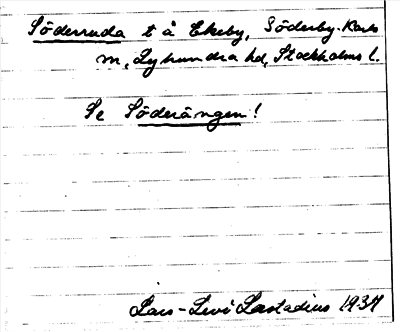 Söderruda t å Ekeby, Söderby-Karls
m, Lyhundra hd, Stockholms l.
Se Söderängen!
Lars-Levi Læstadius 1937